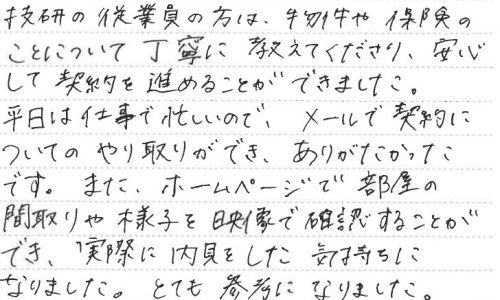 技研の従業員の方は、物件や保険の
ことについて丁寧に教えてくださり、安心
して契約を進めることができました。
平日は仕事で忙しいので、メールで契約に
ついてのやり取りができ、ありがたかった
です。また、ホームページで部屋の
間取りや様子を映像で確認することが
でき、実際に内見をした気持ちに
なりました。とても参考になりました。